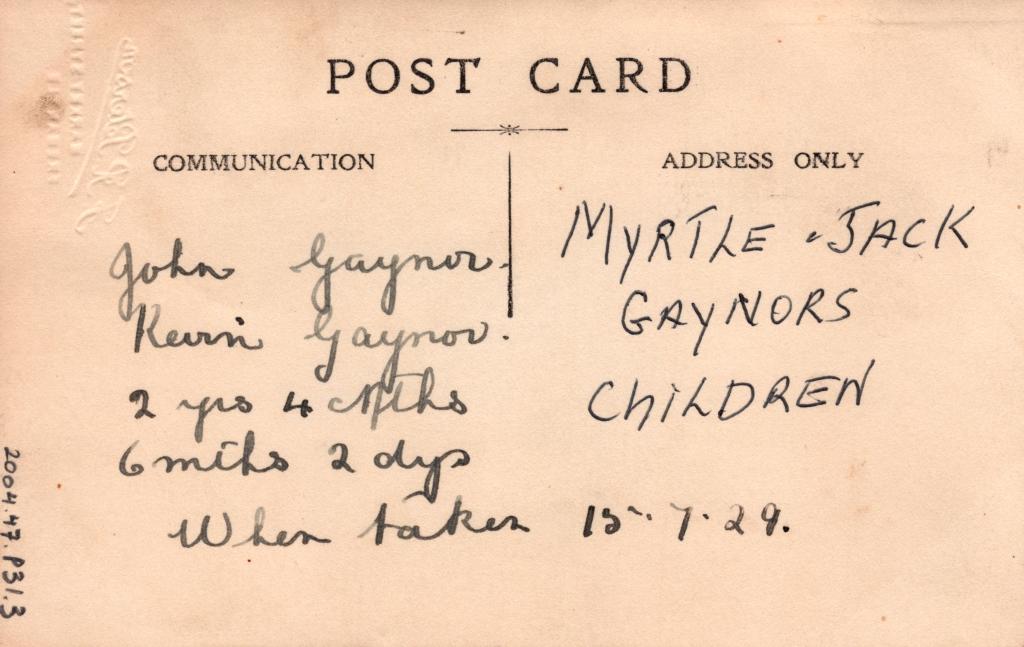 POST CARD
COMMUNICATION
ADDRESS ONLY
John Gaynor.
Kevin Gaynor.
2 yrs 4 Mths
6 mths 2 dys
When taken 15.7.29.
MYRTLE & JACK
GAYNORS
CHILDREN
2004.47.P31.3